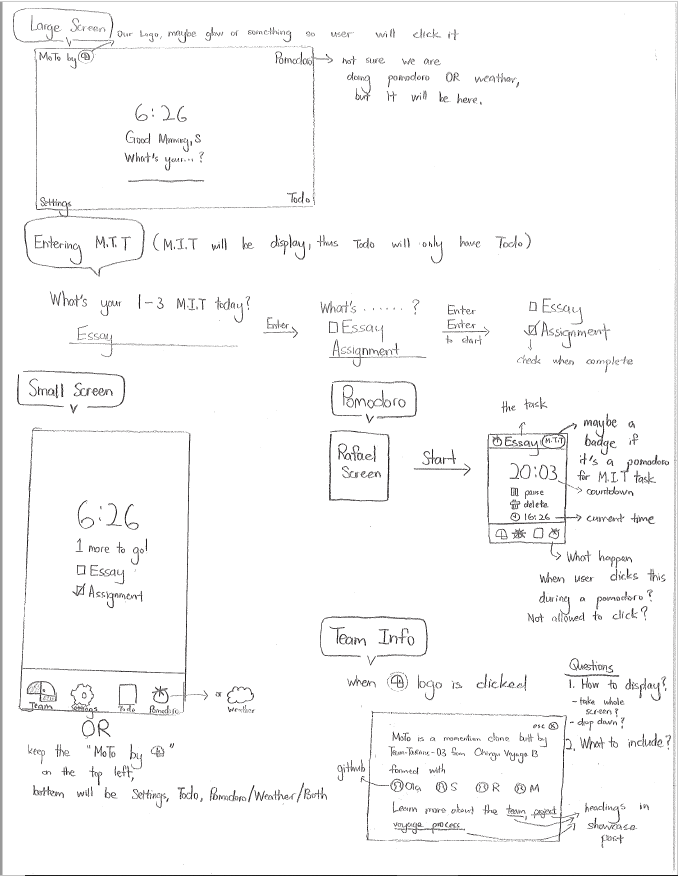 Large Screen
Our Logo, maybe glow or something so user will click it
MoTo by
Pomodoro
not sure we are
doing pomodoro OR weather,
but it will be here.
6:26
Good Morning, S
What's your...?
Settings
Todo
Entering M.I.T
(M.I.T will be display, thus Todo will only have Todo)
What's your 1-3 M.I.T today?
Essay
Enter
What's ......?
Essay
Assignment
Enter
Enter
to start
Essay
Assignment
check when complete
Small Screen
6:26
1 more to go!
Essay
Assignment
Team
Settings
Todo
Pomodoro
or
Weather
OR
keep the "MoTo by "
on the top left,
bottom will be Settings, Todo, Pomodoro/Weather/Both
Pomodoro
Rafael
Screen
Start
the task
Essay
M.I.T
maybe a
badge if
it's a pomodoro
for M.I.T task
20:03
countdown
pause
delete
16:26
current time
What happen
When user clicks this
during a pomodoro?
Not allowed to click?
Team Info
when logo is clicked
Questions
1. How to display?
- take whole
screen?
- drop down?
2. What to include?
esc
MoTo is a momentum clone built by
from Chingu Voyage 8
formed with
github
Ola S R M
Learn more about the team, project
voyage process
headings in
showcase
part